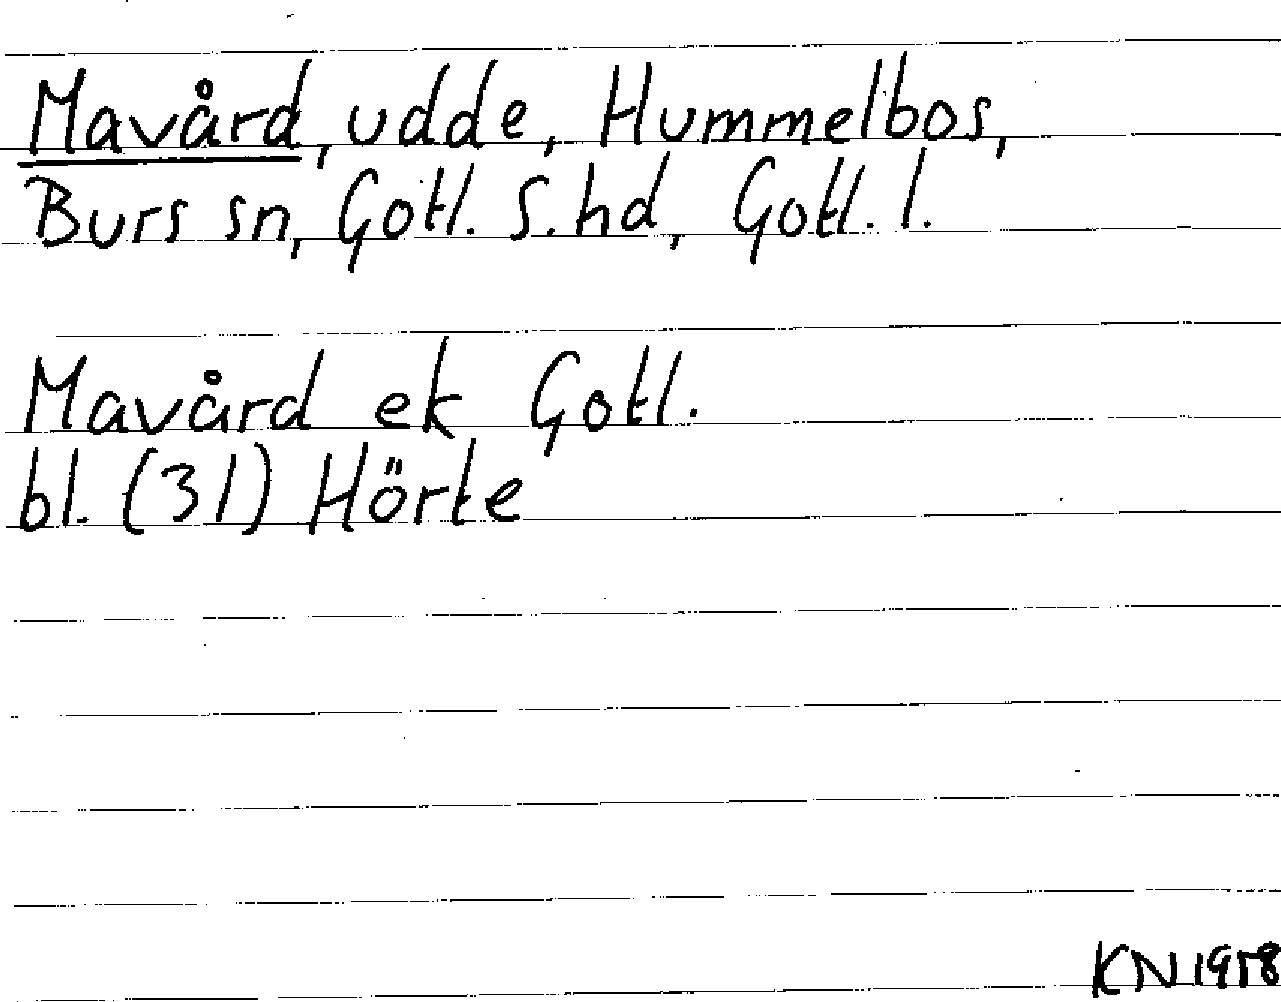 Mavård, udde, Hummelbos,
Burs sn, Gotl. S. hd, Gotl. l.
Mavård ek Gotl.
bl. (31) Hörte
KN 1978